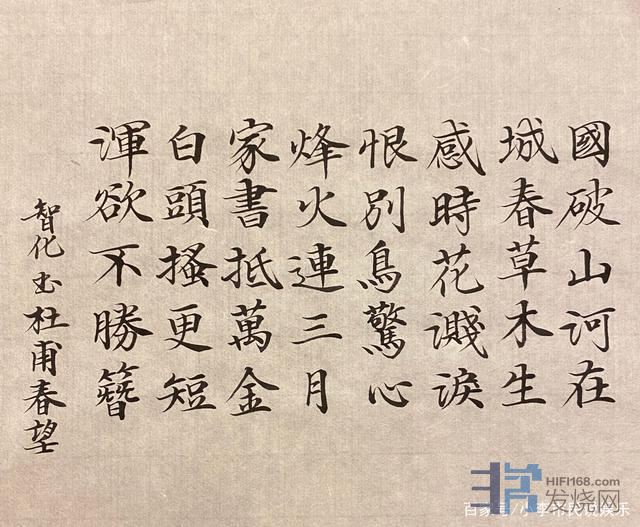 國破山河在
城春草木生
感時花濺淚
恨別鳥驚心
烽火連三月
家書抵萬金
白頭搔更短
渾欲不勝簪
智化书杜甫春望
HIFI168.com
发烧网